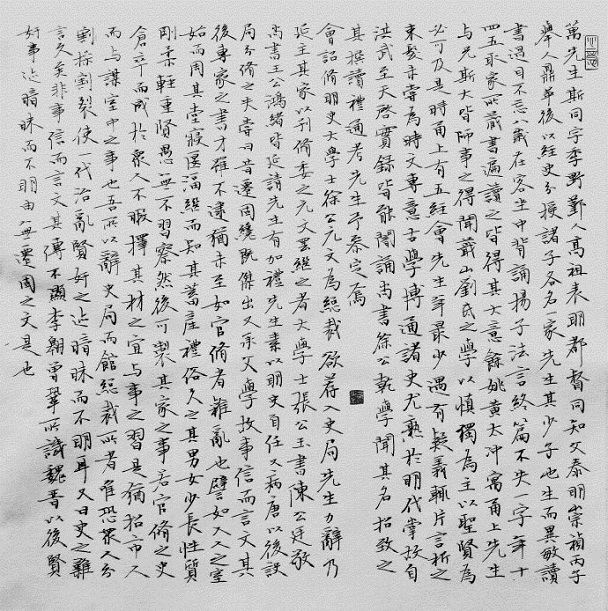 萬先生斯同字季野鄞人高祖表明都督同知父泰明崇禎丙子
舉人鼎革後以經史分授諸子各名一家先生其少子也生而異敏讀
書過目不忘八歲在客坐中背誦揚子法言終篇不失一字年十
四五取家所藏書遍讀之皆得其大意餘姚黃太沖寓甬上先生
与兄斯大皆師事之得聞蕺山劉氏之學以慎獨為主以聖賢為
必可及是時甬上有五經會先生年最少遇有疑義輒片言析之
束髮未嘗為時文專意古學博通諸史尤熟於明代掌故自
洪武至天啓實錄皆能闇誦尚書徐公乾學聞其名招致之
其撰讀禮通考先生予參定焉
會詔修明史大學士徐公元文為總裁欲薦入史局先生力辭乃
延主其家以刊修委之元文罷繼之者大學士張公玉書陳公廷敬
尚書王公鴻緒皆延請先生有加禮先生素以明史自任又病唐以後設
局分修之失嘗曰昔遷固纔既傑出又承父學故事信而言文其
後專家之書才雖不逮猶未至如官修者雜亂也譬如入人之室
始而周其堂寢匽湢繼而知其蓄產禮俗久之其男女少長性質
剛柔輕重賢愚無不習察然後可製其家之事若官修之史
倉卒而成於衆人不暇擇其材之宜与事之習是猶招市人
而与謀室中之事也吾所以辭史局而館總裁所者唯恐衆人分
割操割裂使一代治亂賢奸之迹暗昧而不明耳又曰史之難
言久矣非事信而言文其傳不顯李翱曾鞏所譏魏晉以後賢
奸事迹暗昧而不明由無遷固之文是也